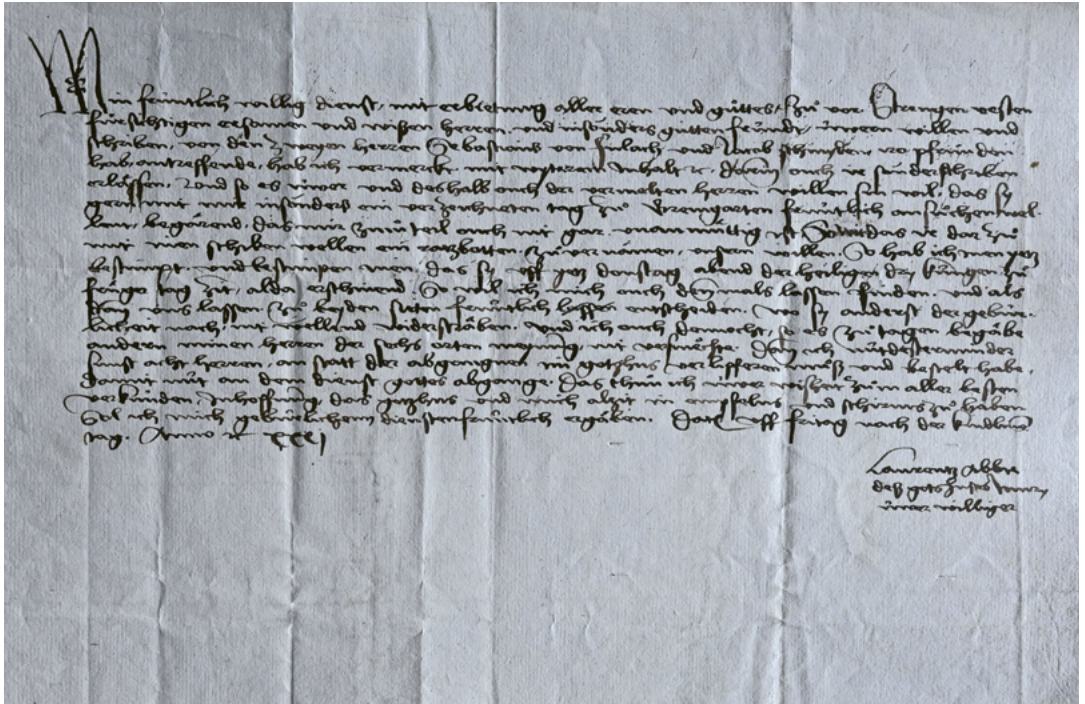 Min früntlich willig dienst, mit erbietung aller eren und güttes, zů vor. Strengen vesten
fürsichtigen ersamen und wißen herren, und insonders gutten fründt, üweren willen und
schriben, von den zweyen herren Sebastions von und Jacob
hab, antreffende, hab ich vermerckt, mit wyterem Inhalt etc. darin auch ir sunderschriben
erlossen. Und so es üwer und deshalb auch der vermelten herren willen sin wil, das sy
gern mit mir insonders ein verzeichneten tag zů Bremgarten früntlich ansůchen wel-
lent, begärend, das mir zum teil auch nit gar unanmüttig ist So wit das ir dar zů
mit inen schiben wellen ein ratzbotten, zů vernämen, unsern willen. So hab ich inen yetz
bestimpt, und bestimpen inen, das sy uff yetz donstag abend der heiligen dry küngen zů
tag zit, alda erschinend So wil ich mich auch domals lossen finden, und als
dann uns lossen, zů beyden sitten früntlich entscheiden. wo sy anderst der gebür-
licheit nach, nit wellend widersträben. Und ich auch democht, so es zů tagen begäbe
andern minen herren der sechs orten meynung, nit verschmächte. Dann ich nüt dester minder
sunst acht herren, an statt der abgangnen im gotzhus verlifferen můß und bestelt habe,
damit nüt an dem dienst gottes abgange. Das thůn ich üwer wisheit zum aller besten
verkünden, Inhoffnung, das gotzhus und mich alzit in empfelnis und schirms zů haben
Sol ich mich gebürlichem diensten früntlich ergäben. Datum uff fritag nach der kindlinen
tag. Anno etc XXXI
Laurentz Abbte
deß gotshuses Mury
üwer williger